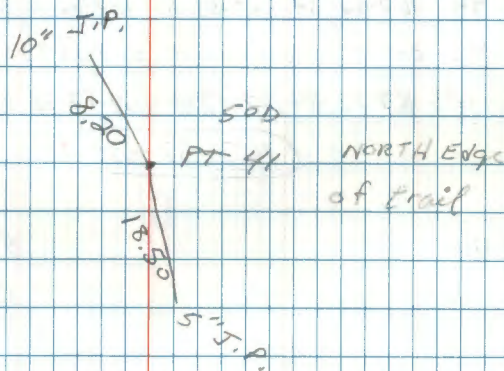 10" J.P.
8.20
50D
PT 41 NORTH Edge
of trail
18.50
5" J.P.